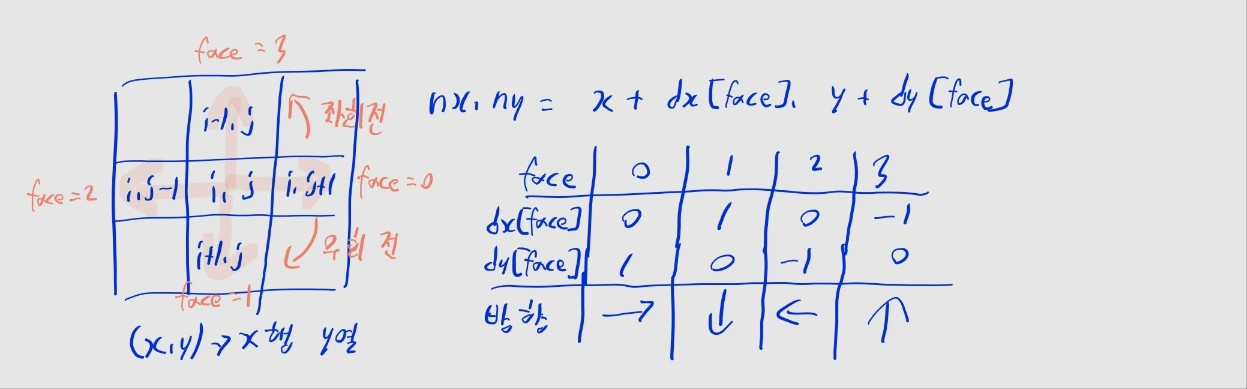 face = 3
i-1, j
좌회전
face=2
i, j-1
i, j
i, j+1
face=0
i+1, j
우회전
face=1
(x, y) → x행 y열
nx, ny = x + dx[face], y + dy[face]
face 0 1 2 3
dx[face] 0 1 0 -1
dy[face] 1 0 -1 0
방향 → ↓ ← ↑